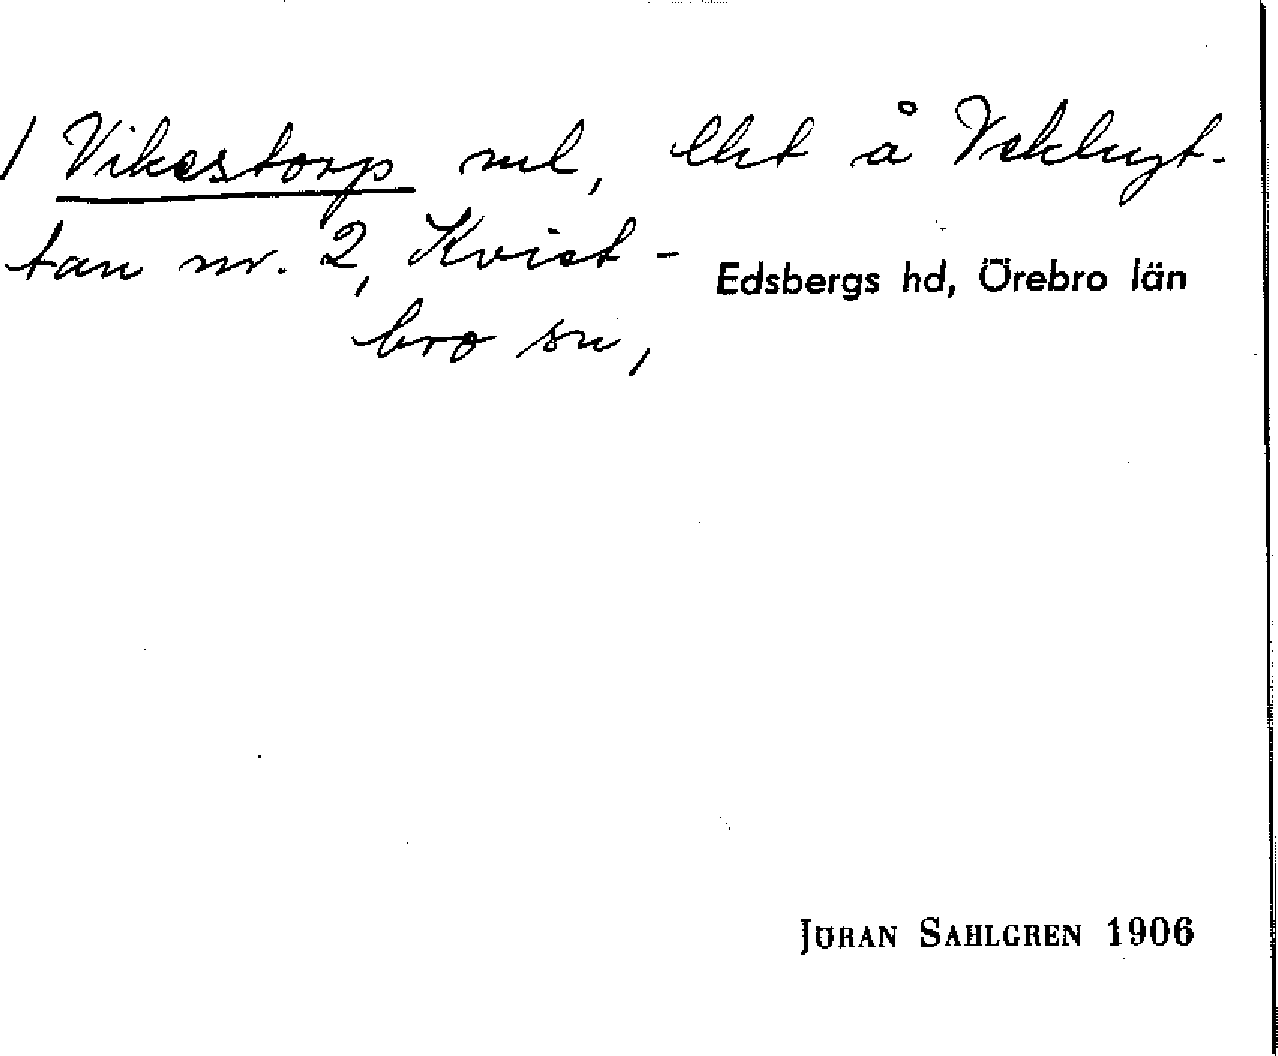 / Vikestorp ml, lht å Vekhyt-
tan nr. 2, Kvist-
bro sn,
Edsbergs hd, Örebro län
JÖRAN SAHLGREN 1906